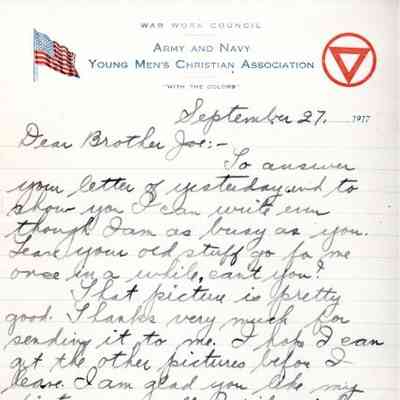 WAR WORK COUNCIL
ARMY AND NAVY
YOUNG MEN'S CHRISTIAN ASSOCIATION
"WITH THE COLORS"
September 27, 1917
Dear Brother Joe:-
To answer
your letter of yesterday and to
show you I can write even
though I am as busy as you.
Leave your old stuff go for me
once in a while, can't you?
That picture is pretty
good. Thanks very much for
sending it to me. I hope I can
get the other pictures before I
leave. I am glad you like my